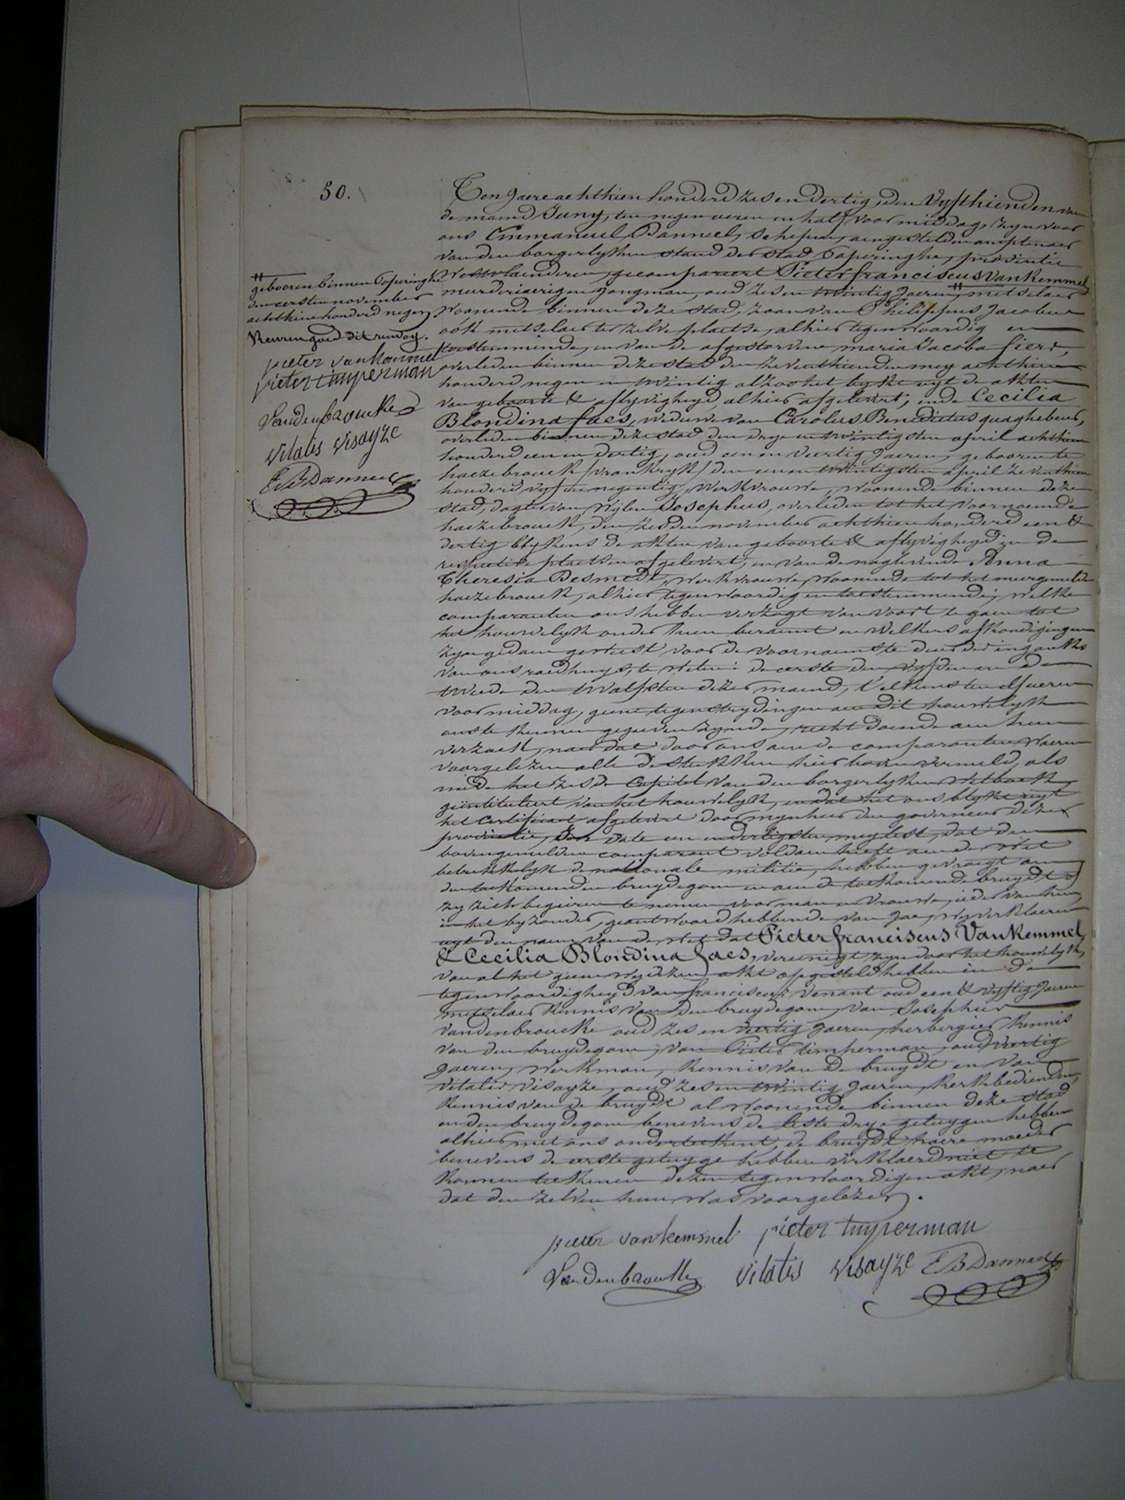 50.
Ten Jaere achthien honderd zes en dertig, den Vyfthienden van
de maend Juny, ten negen ueren en half voormiddag, zyn voor
ons Emmanuel Danneel, Schepen, aengestelden amptenaer
van den borgerlyken stand der stad Poperinghe, provintie
Westvlaenderen, gecompareert Pieter franciscus van Kemmel
meerderjaerigen jongman, oud zes en twintig Jaeren, metselaer
woonende binnen deze stad, zoon van Philippus Jacobus
ook metselaer ter zelve plaetse, alhier tegenwoordig en
toestemmende, en van de afgestorvene maria Jacoba
overleden binnen deze stad den zeventhienden mey achthien
honderd negen en twintig alzoo het blykt uyt de akten
van geboorte & aflyvigheyd alhier afgelevert; ende Cecilia
Blondina faes, weduwe van Carolus Benedictus quaghebeur,
overleden binnen deze stad den drye en twintigsten april achthien
honderd een en dertig, oud een en veertig Jaeren, geboren te
haezebrouck (vrankryk) den een en twintigsten april zeventhien
honderd vyf en negentig, werkvrouwe, woonende binnen deze
stad, dogter van wylen Josephus, overleden tot het voornoemde
haezebrouck, den zesden november achthien honderd een &
dertig blykens de akten van geboorte & aflyvigheyd in de
respective plaetsen afgelevert; en van de naglevende Anna
Theresia Desmedt, werkvrouwe, woonende tot het meergemelde
haezebrouck, alhier tegenwoordig en toestemmende; welke
comparanten ons hebben verzogt van voort te gaen tot
het houwelyk onder hun beraemt en welkers afkondigingen
zyn gedaen geweest voor de voornaemste deur der ingank
van ons raedhuys, te weten: de eerste den vyfden en de
twede den twalfsten dezer maend, t'elkens ten elf ueren
voormiddag, geene tegenstrydingen aen dit houwelyk
ons te kennen gegeven zynde, recht doende aen hun
verzoek, naer dat door ons aen de comparanten waeren
voorgelezen alle de stukken hier boven vermeld, als
mede het zesde Capitel van den borgerlyken Wetboek,
geintituleert van het houwelyk, en dat het ons blykt uyt
het Certificaet afgelevert door mynheer den governeur dezer
provintie, in date een en dertigsten mey lest, dat den
bovengemelden comparant voldaen heeft aen de wet
betrekkelyk de nationale militie, hebben gevraegt aen
den toekomenden bruydegom en aen de toekomende bruydt of
zy zich begeiren te nemen voor man en vrouwe, ieder van hun
in het byzonder, geantwoord hebbende van Jae, wy verklaeren
uyt den naem van de wet dat Pieter franciscus Van Kemmel,
& Cecilia Blondina faes, vereenigt zyn door het houwelyk,
van al het gene wy dezen akt opgesteld hebben in de
tegenwoordigheyd van franciscus Venant oud een & vyftig Jaeren
metselaer kennis van den bruydegom, van Josephus
Vandenbroucke oud zes en veertig Jaeren, herbergier kennis
van den bruydegom, van Pieter timperman, oud veertig
Jaeren, werkman, kennis van de bruydt en van
Vitalis Visayze, oud zes en twintig Jaeren, kerkbediende,
kennis van de bruydt al woonende binnen deze stad
en den bruydegom benevens de leste drye getuygen hebben
alhier met ons onderteekent, de bruydt haere moeder
benevens de eerste getuyge hebben verklaerd niet te
konnen teekenen dezen tegenwoordigen akt, naer
dat den zelven hun was voorgelezen.
geboren binnen Poperinghe
den eersten november
achthien honderd negen
Keuren goed dit renvoy.
pieter vankemmel
pieter timperman
Vandenbroucke
vitalis visayze
E B Danneel
pieter vankemmel pieter timperman
Vandenbroucke vitalis visayze E B Danneel